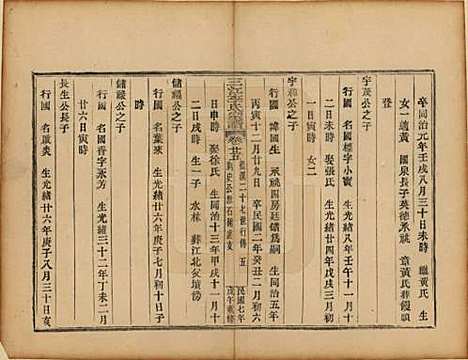 卒同治元年壬戌八月三十日未時 繼黃氏 生
女一適黃 國泉長子英德承祧 章黃氏
登
宇茂公之子
行國 名標字小賓 生光緒八年壬午十一月
日寅時 娶張氏 生光緒四年戊戌三月
時 女二
宇 公之子
行國 諱國生 承祧四房廷 爲嗣 生同治五年
丙寅十二月廿九日 卒民國二年癸丑二月初六
三江李氏宗譜 卷廿五 二十七世行傳 五 民國七年 戊午重修
日申時 娶徐氏 生同治十三年甲戌十一月十
二日戌時 生子一 水林 蘇江北
儲福公之子
行國 名葉來 生光緒廿六年庚子七月初十日子
時
儲祿公之子
行國 名國喜字來芳 生光緒三十二年丁未二月
廿六日寅時
長生公長子
行國 名歲炎 生光緒廿六年庚子八月三十日亥